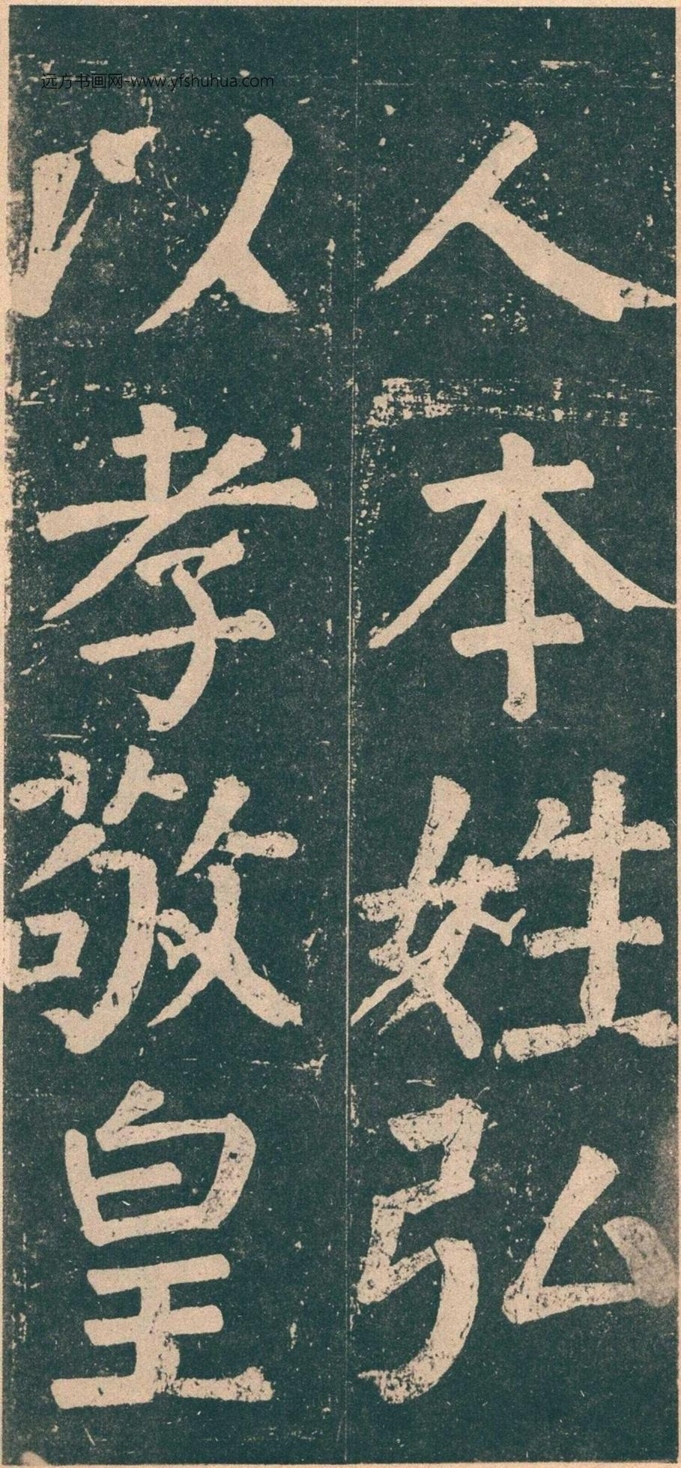 远方书画网-www.yfshuhua.com
人本姓弘
以孝敬皇